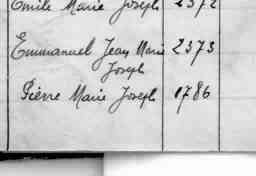 Emile Marie Joseph 2372
Emmanuel Jean Marie 2373
Joseph
Pierre Marie Joseph 1786